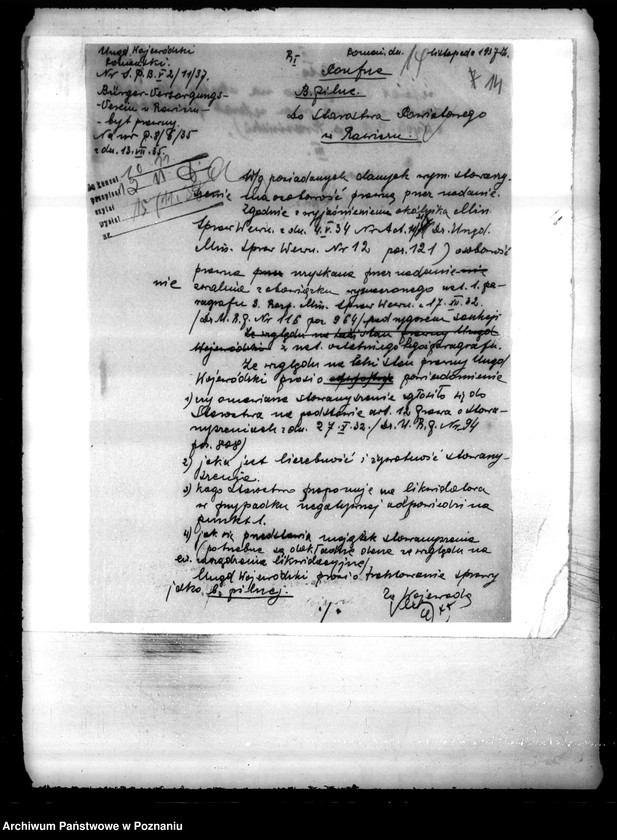 Urząd Wojewódzki
Poznański.
Bürger-Versorgungs-
Verein w Rawiczu -
- byt prawny.
z dn. 13.VII.35.
Poznań, dn. 14 listopada 1937 r.
Poufne
B. pilne.
Do Starostwa Powiatowego
w Rawiczu.
14
W/g posiadanych danych wym. stowarzy-
szenie ma osobowość prawną przez nadanie.
Zgodnie z wyjaśnieniem okólnika Min.
Spraw Wewn. z dn. 4.V.34 Dz. Urzęd.
Min. Spraw Wewn. Nr 12 poz. 121) osobowość
prawna uzyskana przez nadanie
nie zwalnia z obowiązku ust. 1. pa-
ragrafu 9. Rozp. Min. Spraw Wewn. z 17.
/Dz. U. R. P. Nr 116 poz. 964/ pod rygorem sankcji
Ze względu na taki stan prawny Urząd
Wojewódzki z ust. ostatniego tegoż paragrafu.
Ze względu na taki stan prawny Urząd
Wojewódzki prosi o powiadomienie
1) czy omawiane stowarzyszenie zgłosiło się do
Starostwa na podstawie art. 12 Prawa o stowa-
rzyszeniach z dn. 27.X.32./Dz. U. R. P. Nr. 94
poz. 808/
2) jaka jest liczebność i żywotność stowarzy-
szenia.
3) kogo Starostwo proponuje na likwidatora
w przypadku negatywnej odpowiedzi na
punkt 1.
4) jak się przedstawia majątek stowarzyszenia
(potrzebne są dokładne dane ze względu na
ew. zarządzenia likwidacyjne/
Urząd Wojewódzki prosi o traktowanie sprawy
jako b. pilnej.
Za Wojewodę
Archiwum Państwowe w Poznaniu